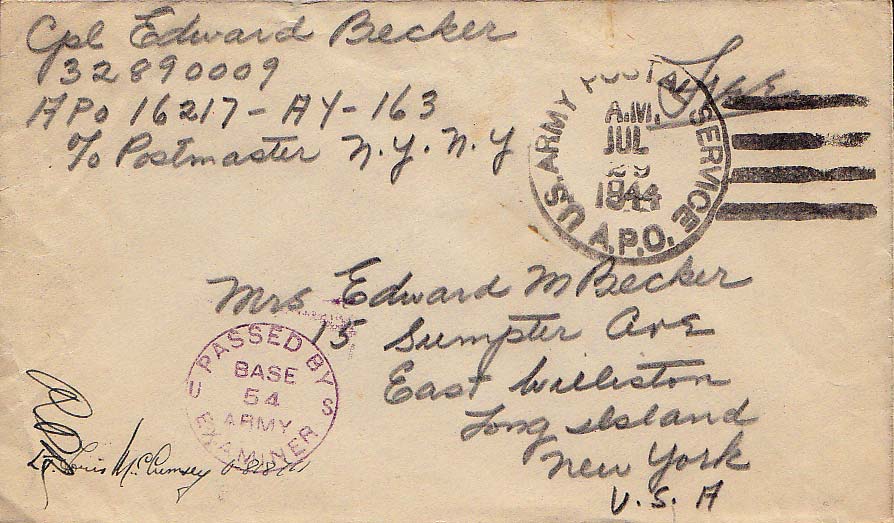 Cpl Edward Becker
32890009
APO 16217-AY-163
℅ Postmaster N.Y. N.Y
Free
U.S. ARMY POSTAL SERVICE
A.M.
JUL
1944
A.P.O.
Mrs Edward M Becker
15 Sumpter Ave
East Williston
Long Island
New York
U.S.A
PASSED BY
U S
BASE
54
ARMY
EXAMINER
Lt. Louis